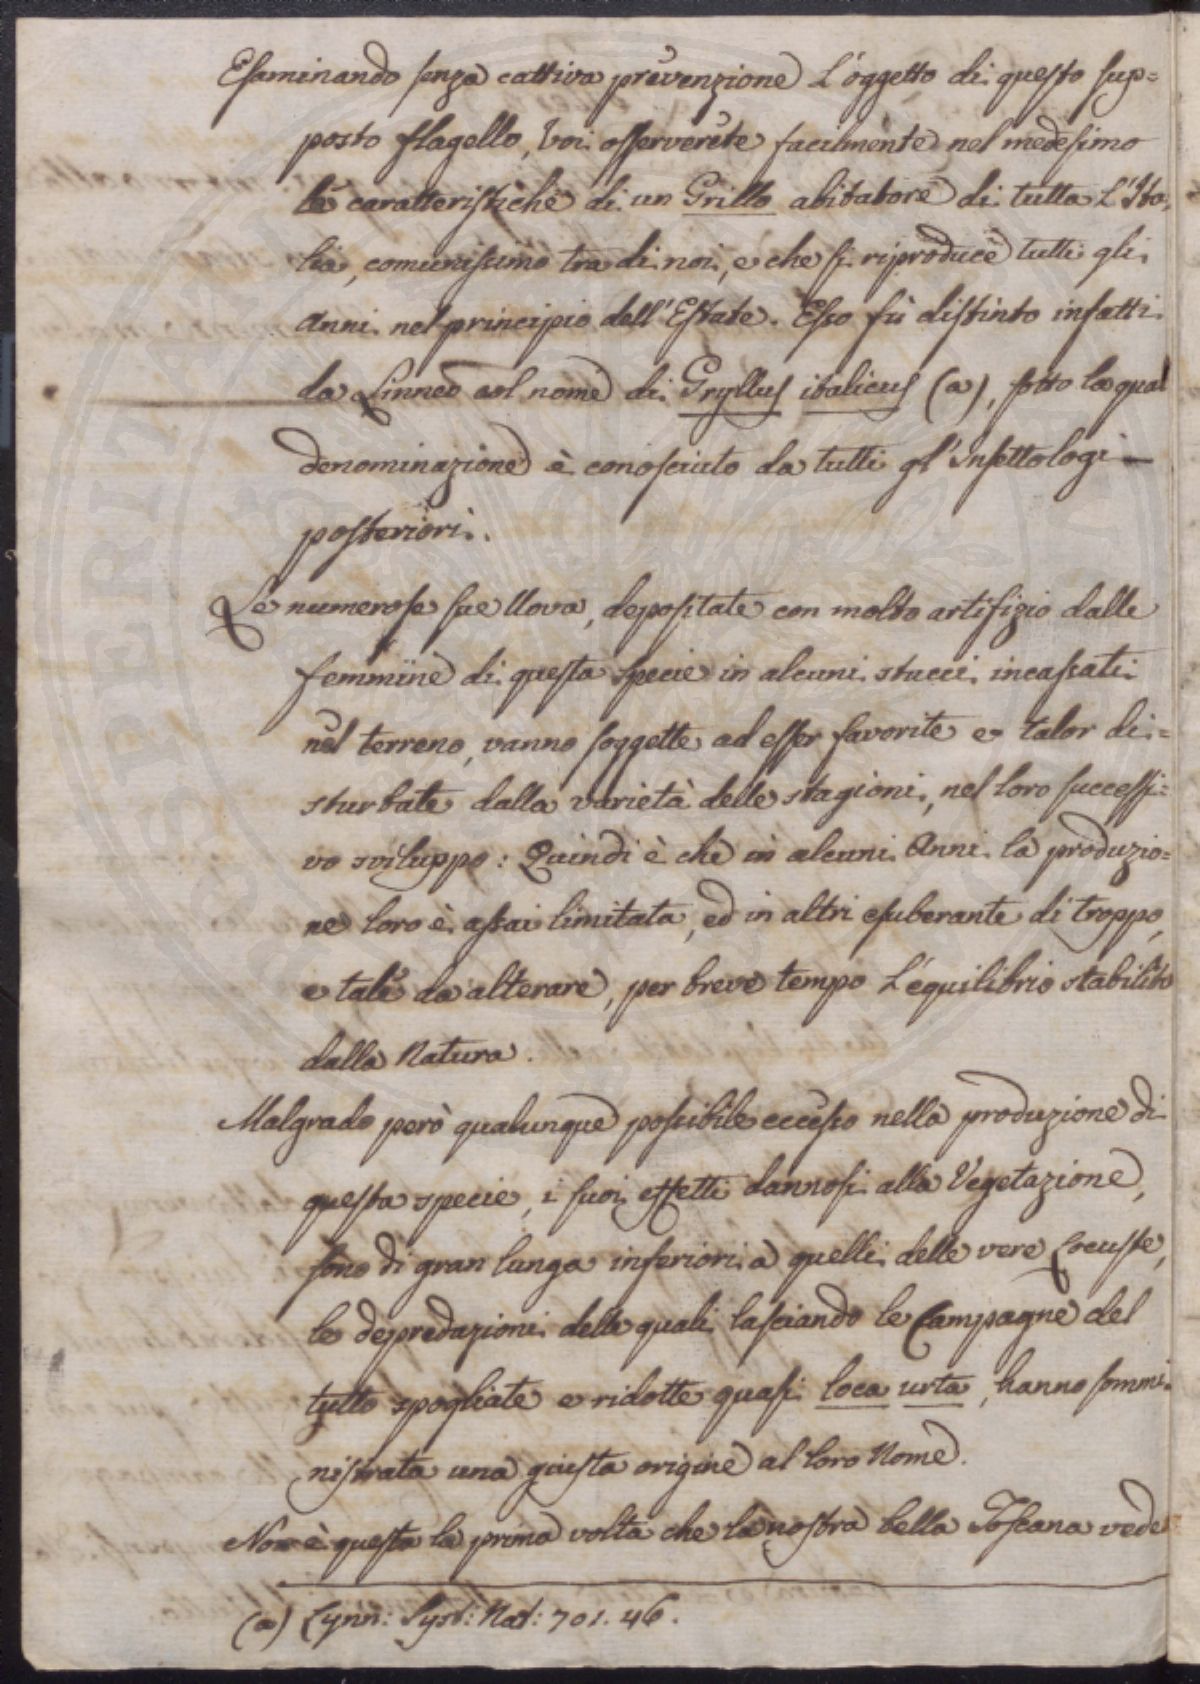 Esaminando senza cattiva prevenzione L'oggetto di questo sup=
posto flagello, Voi osserverete facilmente nel medesimo
le caratteristiche di un Grillo abitatore di tutta L'Ita=
lia, comunissimo tra di noi, e che si riproduce tutti gli
Anni nel principio dell'Estate. Esso fù distinto infatti
da Linneo col nome di Gryllus italicus (a), sotto la qual
denominazione è conosciuto da tutti gl'Insettologi
posteriori.
Le numerose sue Uova, depositate con molto artifizio dalle
femmine di questa specie in alcuni stucci incassati
nel terreno, vanno soggette ad esser favorite e talor di=
sturbate dalla varietà delle stagioni, nel loro successi=
vo sviluppo: Quindi è che in alcuni Anni la produzio=
ne loro è assai limitata, ed in altri esuberante di troppo,
e tale da alterare, per breve tempo L'equilibrio stabilito
dalla Natura.
Malgrado però qualunque possibile eccesso nella produzione di
questa specie, i suoi effetti dannosi alla Vegetazione,
sono di gran lunga inferiori a quelli delle vere Locuste,
le depredazioni delle quali lasciando le Campagne del
tutto spogliate e ridotte quasi loca usta, hanno sommi=
nistrata una giusta origine al loro Nome.
Non è questa la prima volta che la nostra bella Toscana vede
(a) Lynn: Syst: Nat: 701. 46.
SPERITAN